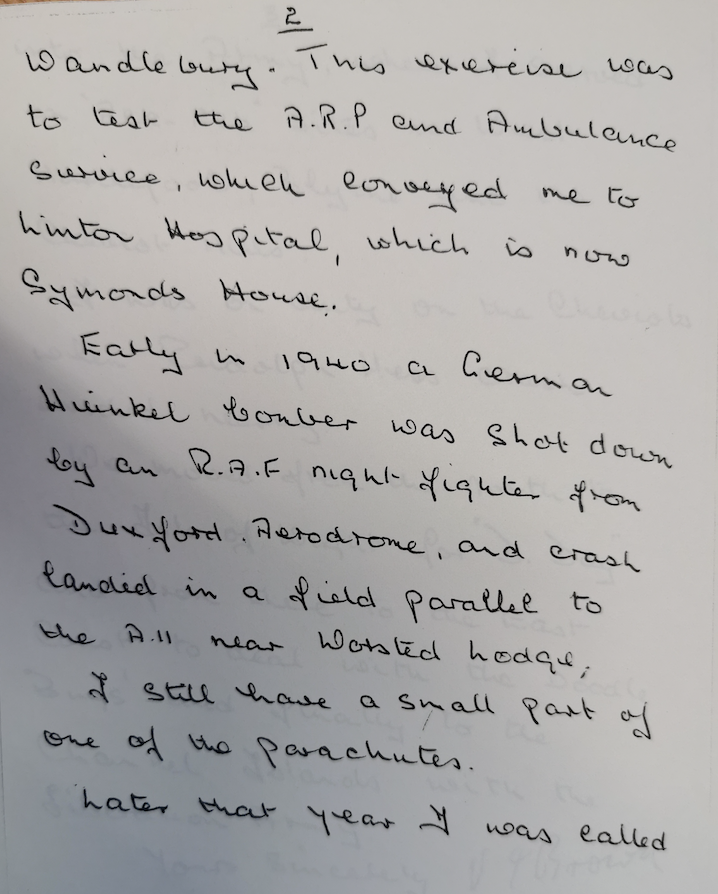 2
Wandlebury. This exercise was
to test the A.R.P and Ambulance
Service, which conveyed me to
Linton Hospital, which is now
Symonds House.
Early in 1940 a German
Heinkel bomber was shot down
by an R.A.F night fighter from
Duxford. Aerodrome, and crash
landed in a field parallel to
the A.11 near Worsted Lodge,
I still have a small part of
one of the parachutes.
Later that year I was called